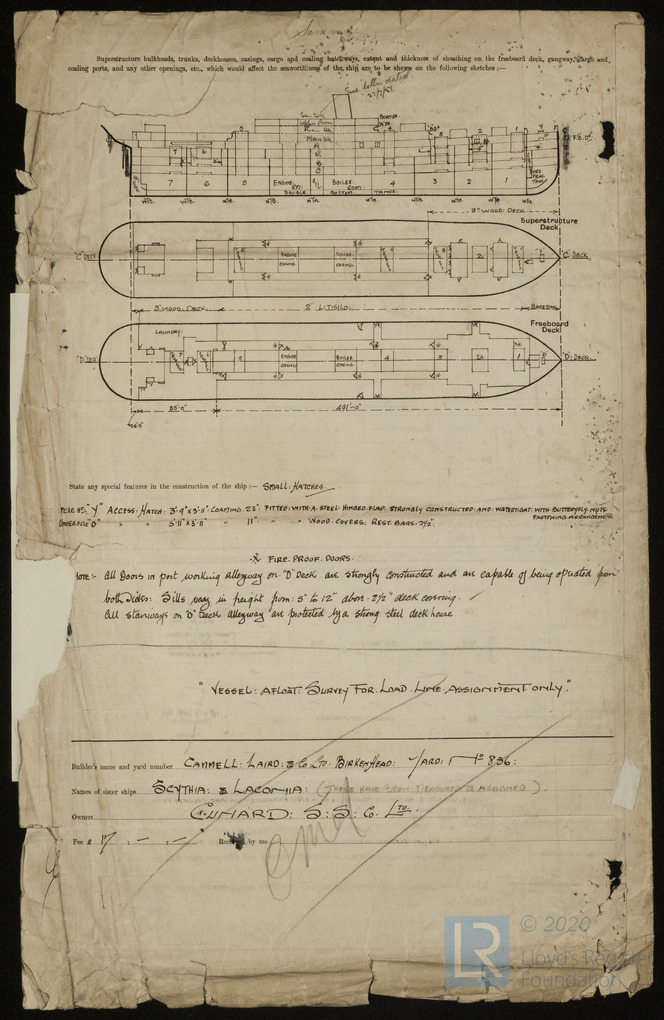 Superstructure bulkheads, trunks, deckhouses, casings, cargo and coaling hatchways, extent and thickness of sheathing on the freeboard deck, gangway, cargo and
coaling ports, and any other openings, etc., which would affect the seaworthiness of the ship, are to be shewn on the following sketches :—
See letter dated
BOATER
DECK
7 6 5 ENGINE RM: BOILER: ROOM: 4 3 2 1
DOUBLE BOTTOM TANKS
WTB. WTB. WTB. WTB. WTB. WTB. WTB. WTB. WTB.
3" WOOD: DECK
Superstructure
Deck
"C" DECK
ENGINE
CASING
BOILER
CASING
"C" DECK
3" WOOD: DECK 2" LITISILO.
Freeboard
Deck
LAUNDRY:
"D" DECK
ENGINE
CASING
BOILER
CASING
4 3 2A 1
"D" DECK
85'-0" 491'-0"
State any special features in the construction of the ship :— SMALL: HATCHES.
"Y" ACCESS: HATCH: 3'-9"x5'-11" COAMING 23" FITTED: WITH: A: STEEL: HINGED: FLAP: STRONGLY CONSTRUCTED: AND: WATERTIGHT: WITH: BUTTERFLY: NUTS
FASTENING ARRANGEMENT
"D" " " 5'-11"x3'-11" " 11" " WOOD: COVERS: REST: BARS: 2½".
FIRE: PROOF: DOORS.
NOTE :- All Doors in port working alleyway on "D" Deck are strongly constructed and are capable of being operated from
both sides: Sills vary in height from: 5" to 12" above 2½" deck covering.
All stairways on "D" Deck alleyway are protected by a strong steel deck house
"VESSEL: AFLOAT: SURVEY: FOR: LOAD: LINE: ASSIGNMENT ONLY."
Builder's name and yard number CAMMELL: LAIRD: & Co. LTD: BIRKENHEAD: YARD: No 836:
Names of sister ships SCYTHIA: & LACONIA: (THESE HAVE BEEN MEASURED & ASSIGNED).
Owners CUNARD: S: S: Co. LTD.
Fee £ 17 : — : — : Received by me
© 2020
LR
Lloyd's Register
Foundation